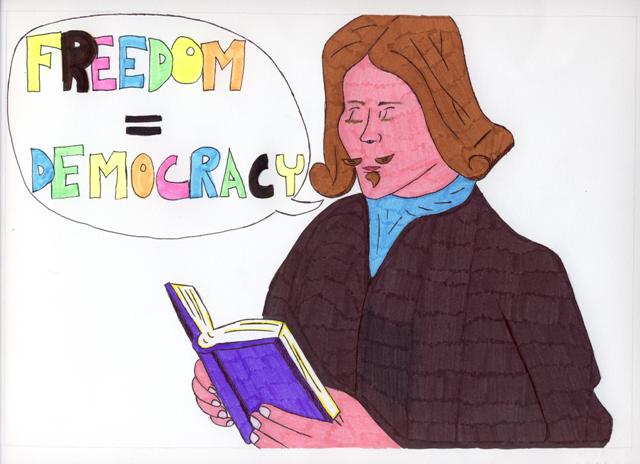 FREEDOM
=
DEMOCRACY